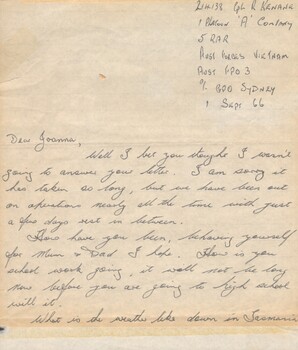 Cpl R
1 Platoon 'A' Company
5 RAR
Aust Forces Vietnam
Aust GPO 3
% GPO SYDNEY
1 Sept 66
Dear Joanna,
Well I bet you thought I wasn't
going to answer your letter. I am sorry it
has taken so long, but we have been out
on operations nearly all the time with just
a few days rest in between.
How have you been, behaving yourself
for Mum & Dad I hope. How is you
school work going, it wall not be long
now before you are going to high school
will it.
What is the weather like down in Tasmania